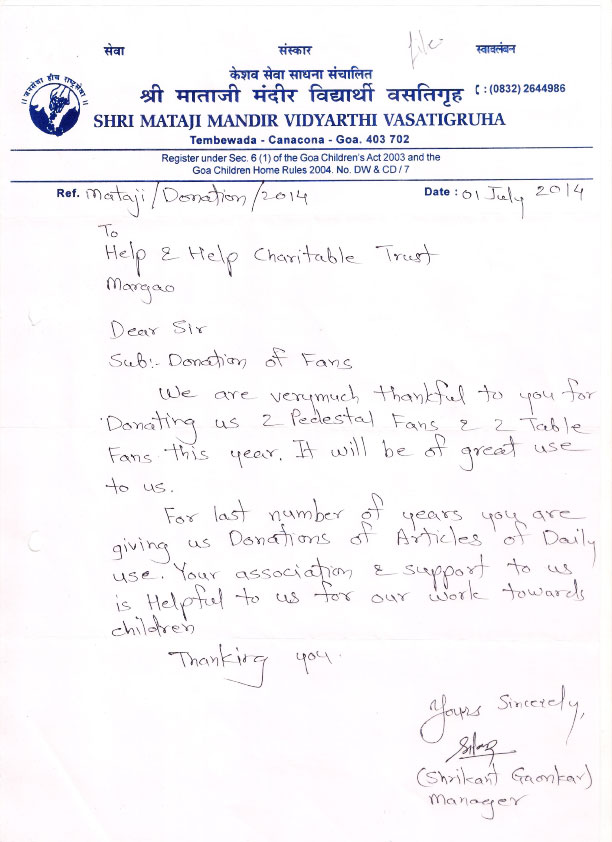 सेवा संस्कार file स्वावलंबन
केशव सेवा साधना संचालित
श्री माताजी मंदीर विद्यार्थी वसतिगृह : (0832) 2644986
SHRI MATAJI MANDIR VIDYARTHI VASATIGRUHA
Tembewada - Canacona - Goa. 403 702
Register under Sec. 6 (1) of the Goa Children's Act 2003 and the
Goa Children Home Rules 2004. No. DW & CD / 7
Ref. Mataji/Donation/2014 Date : 01 July 2014
To
Help & Help Charitable Trust
Margao
Dear Sir
Sub:- Donation of Fans
We are verymuch thankful to you for
Donating us 2 Pedestal Fans & 2 Table
Fans this year. It will be of great use
to us.
For last number of years you are
giving us Donations of Articles of Daily
use. Your association & support to us
is Helpful to us for our work towards
children
Thanking you.
Yours Sincerely,
(Shrikant Gaonkar)
Manager